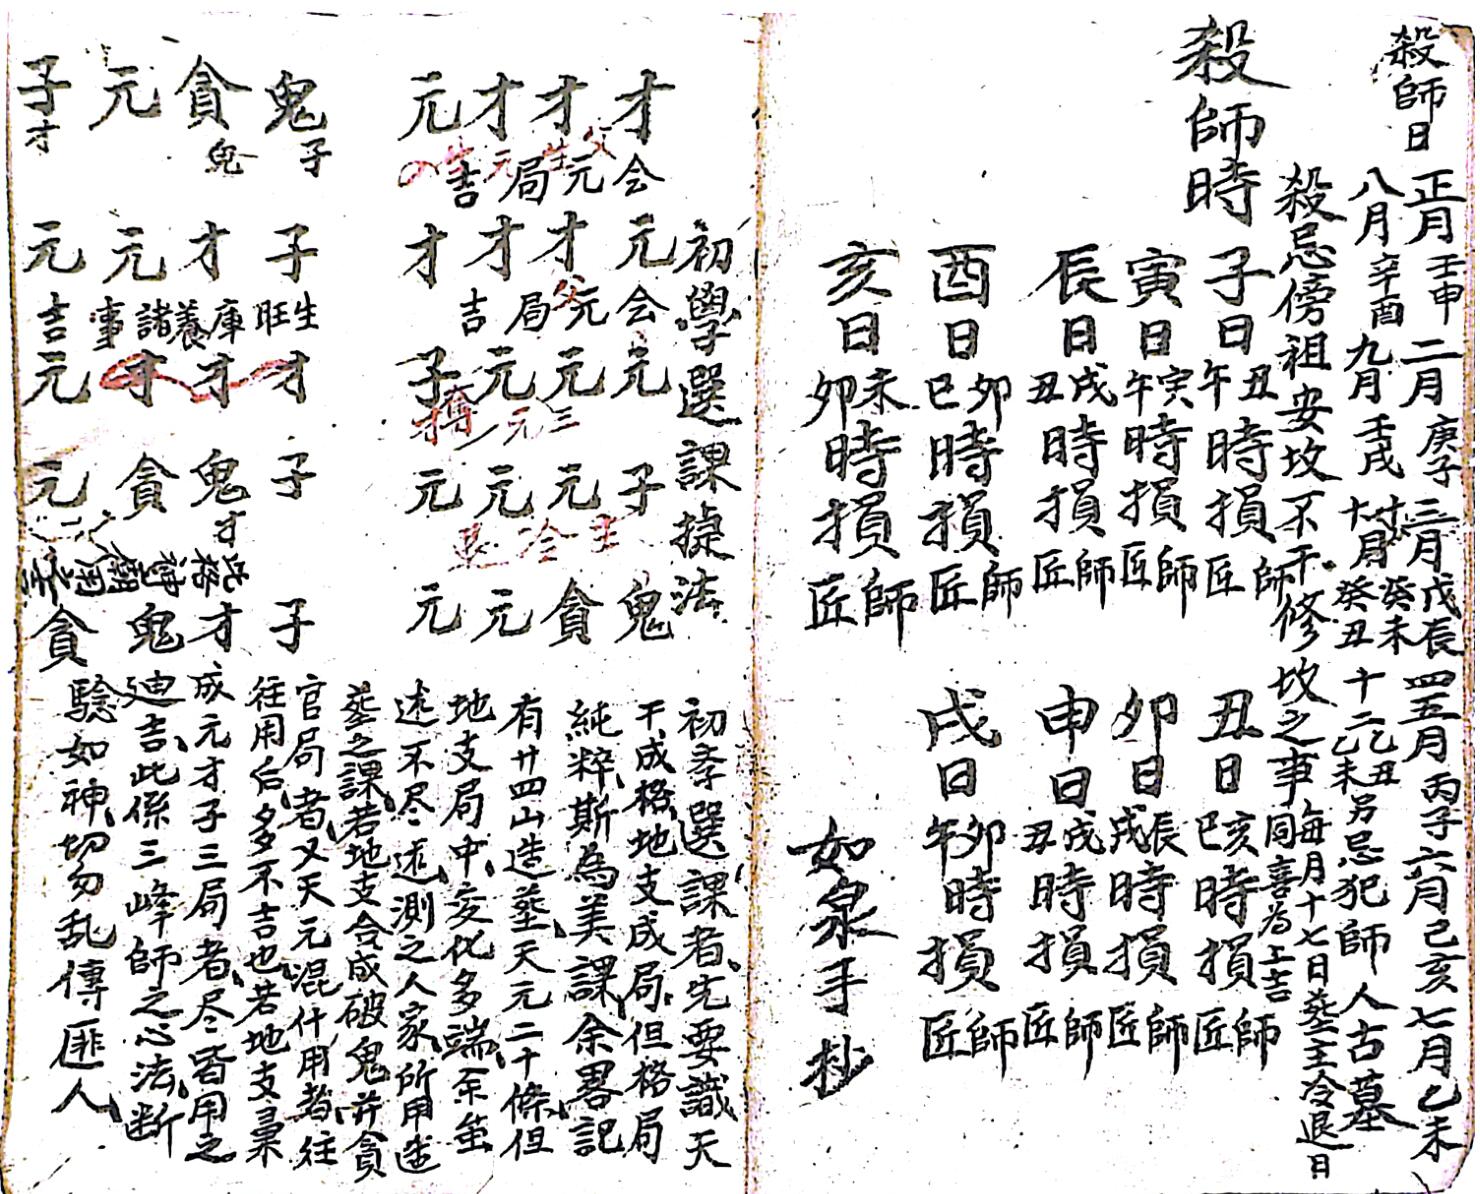 殺師日
正月壬申二月庚子三月戊辰四五月丙子六月己亥七月乙未
八月辛酉九月壬戌十月癸未癸丑十二乙丑乙未另忌犯師人古墓
殺忌傍祖安坟不干修坟之事每月十七日葬主冷退日同喜為上吉
殺師時
子日丑午時損師匠 丑日亥巳時損師匠
寅日寅午時損師匠 卯日辰戌時損師匠
辰日戌丑時損師匠 申日戌丑時損師匠
酉日卯巳時損師匠 戌日卯午時損師匠
亥日未卯時損師匠
如泉手抄
初學選課捷法
初季選課者先要識天
干成格地支成局但格局
純粹斯為美課余畧記
有廿四山造葬天元二十條但
地支局中変化多端余筆
述不尽述測之人家所用造
葬之課若地支合成破鬼并貪
官局者又天元混什用者往
往用后多不吉也若地支稟
成元才子三局者尽皆用之
迪吉此係三峰師之心法断
驗如神切勿乱傳匪人
才 元 元 子 鬼
才 才 元 元 貪
才 才 元 元 元
元 才 子 元 元
会元局吉
会元局吉
父
三元
鬼 子 才 子 子
貪 才 才 鬼 才
元 元 才 貪 鬼
子 元 元 元 貪
子 鬼 才
生旺庫養諸事吉
才